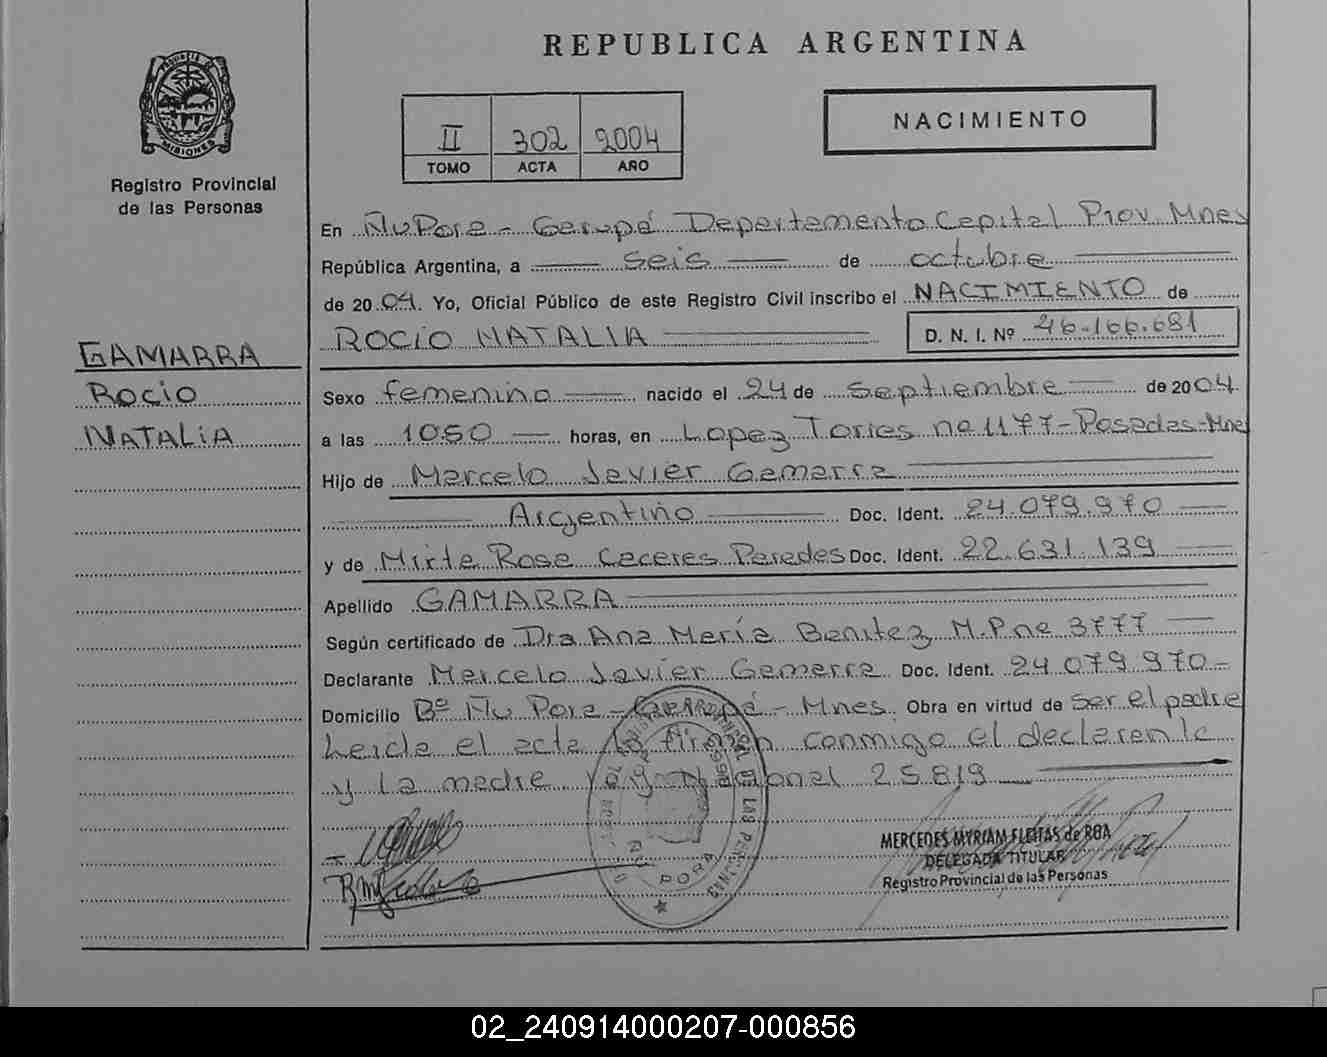 REPUBLICA ARGENTINA
MISIONES
Registro Provincial
de las Personas
II 302 2004
TOMO ACTA AÑO
NACIMIENTO
GAMARRA
ROCIO
NATALIA
En Ñu Pora - Garupá Departamento Capital Prov. Mnes
República Argentina, a seis de octubre
de 2004. Yo, Oficial Público de este Registro Civil inscribo el NACIMIENTO de
ROCIO NATALIA D. N. I. Nº 46.166.681
Sexo femenino nacido el 24 de septiembre de 2004
a las 1050 horas, en Lopez Torres nº 1177-Posadas-Mnes
Hijo de Marcelo Javier Gamarra
Argentino Doc. Ident. 24.079.970
y de Mirta Rosa Caceres Paredes Doc. Ident. 22.631.139
Apellido GAMARRA
Según certificado de Dra Ana María Benitez M.P nº 3777
Declarante Marcelo Javier Gamarra Doc. Ident. 24.079.970-
Domicilio Bº Ñu Pora - Garupá - Mnes. Obra en virtud de ser el padre
Leida el acta la firman conmigo el declarante
y la madre 25.819
MERCEDES MYRIAM FLEITAS de ROA
DELEGADA TITULAR
Registro Provincial de las Personas
DE LAS PERSONAS
ÑU PORA
02_240914000207-000856